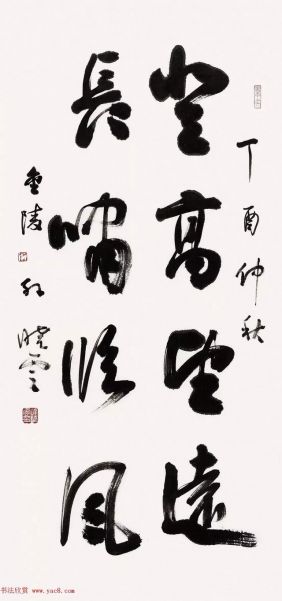 丁酉仲秋
登高望遠
長嘯臨风
金陵孙曉雲
书法欣赏 www.yac8.com